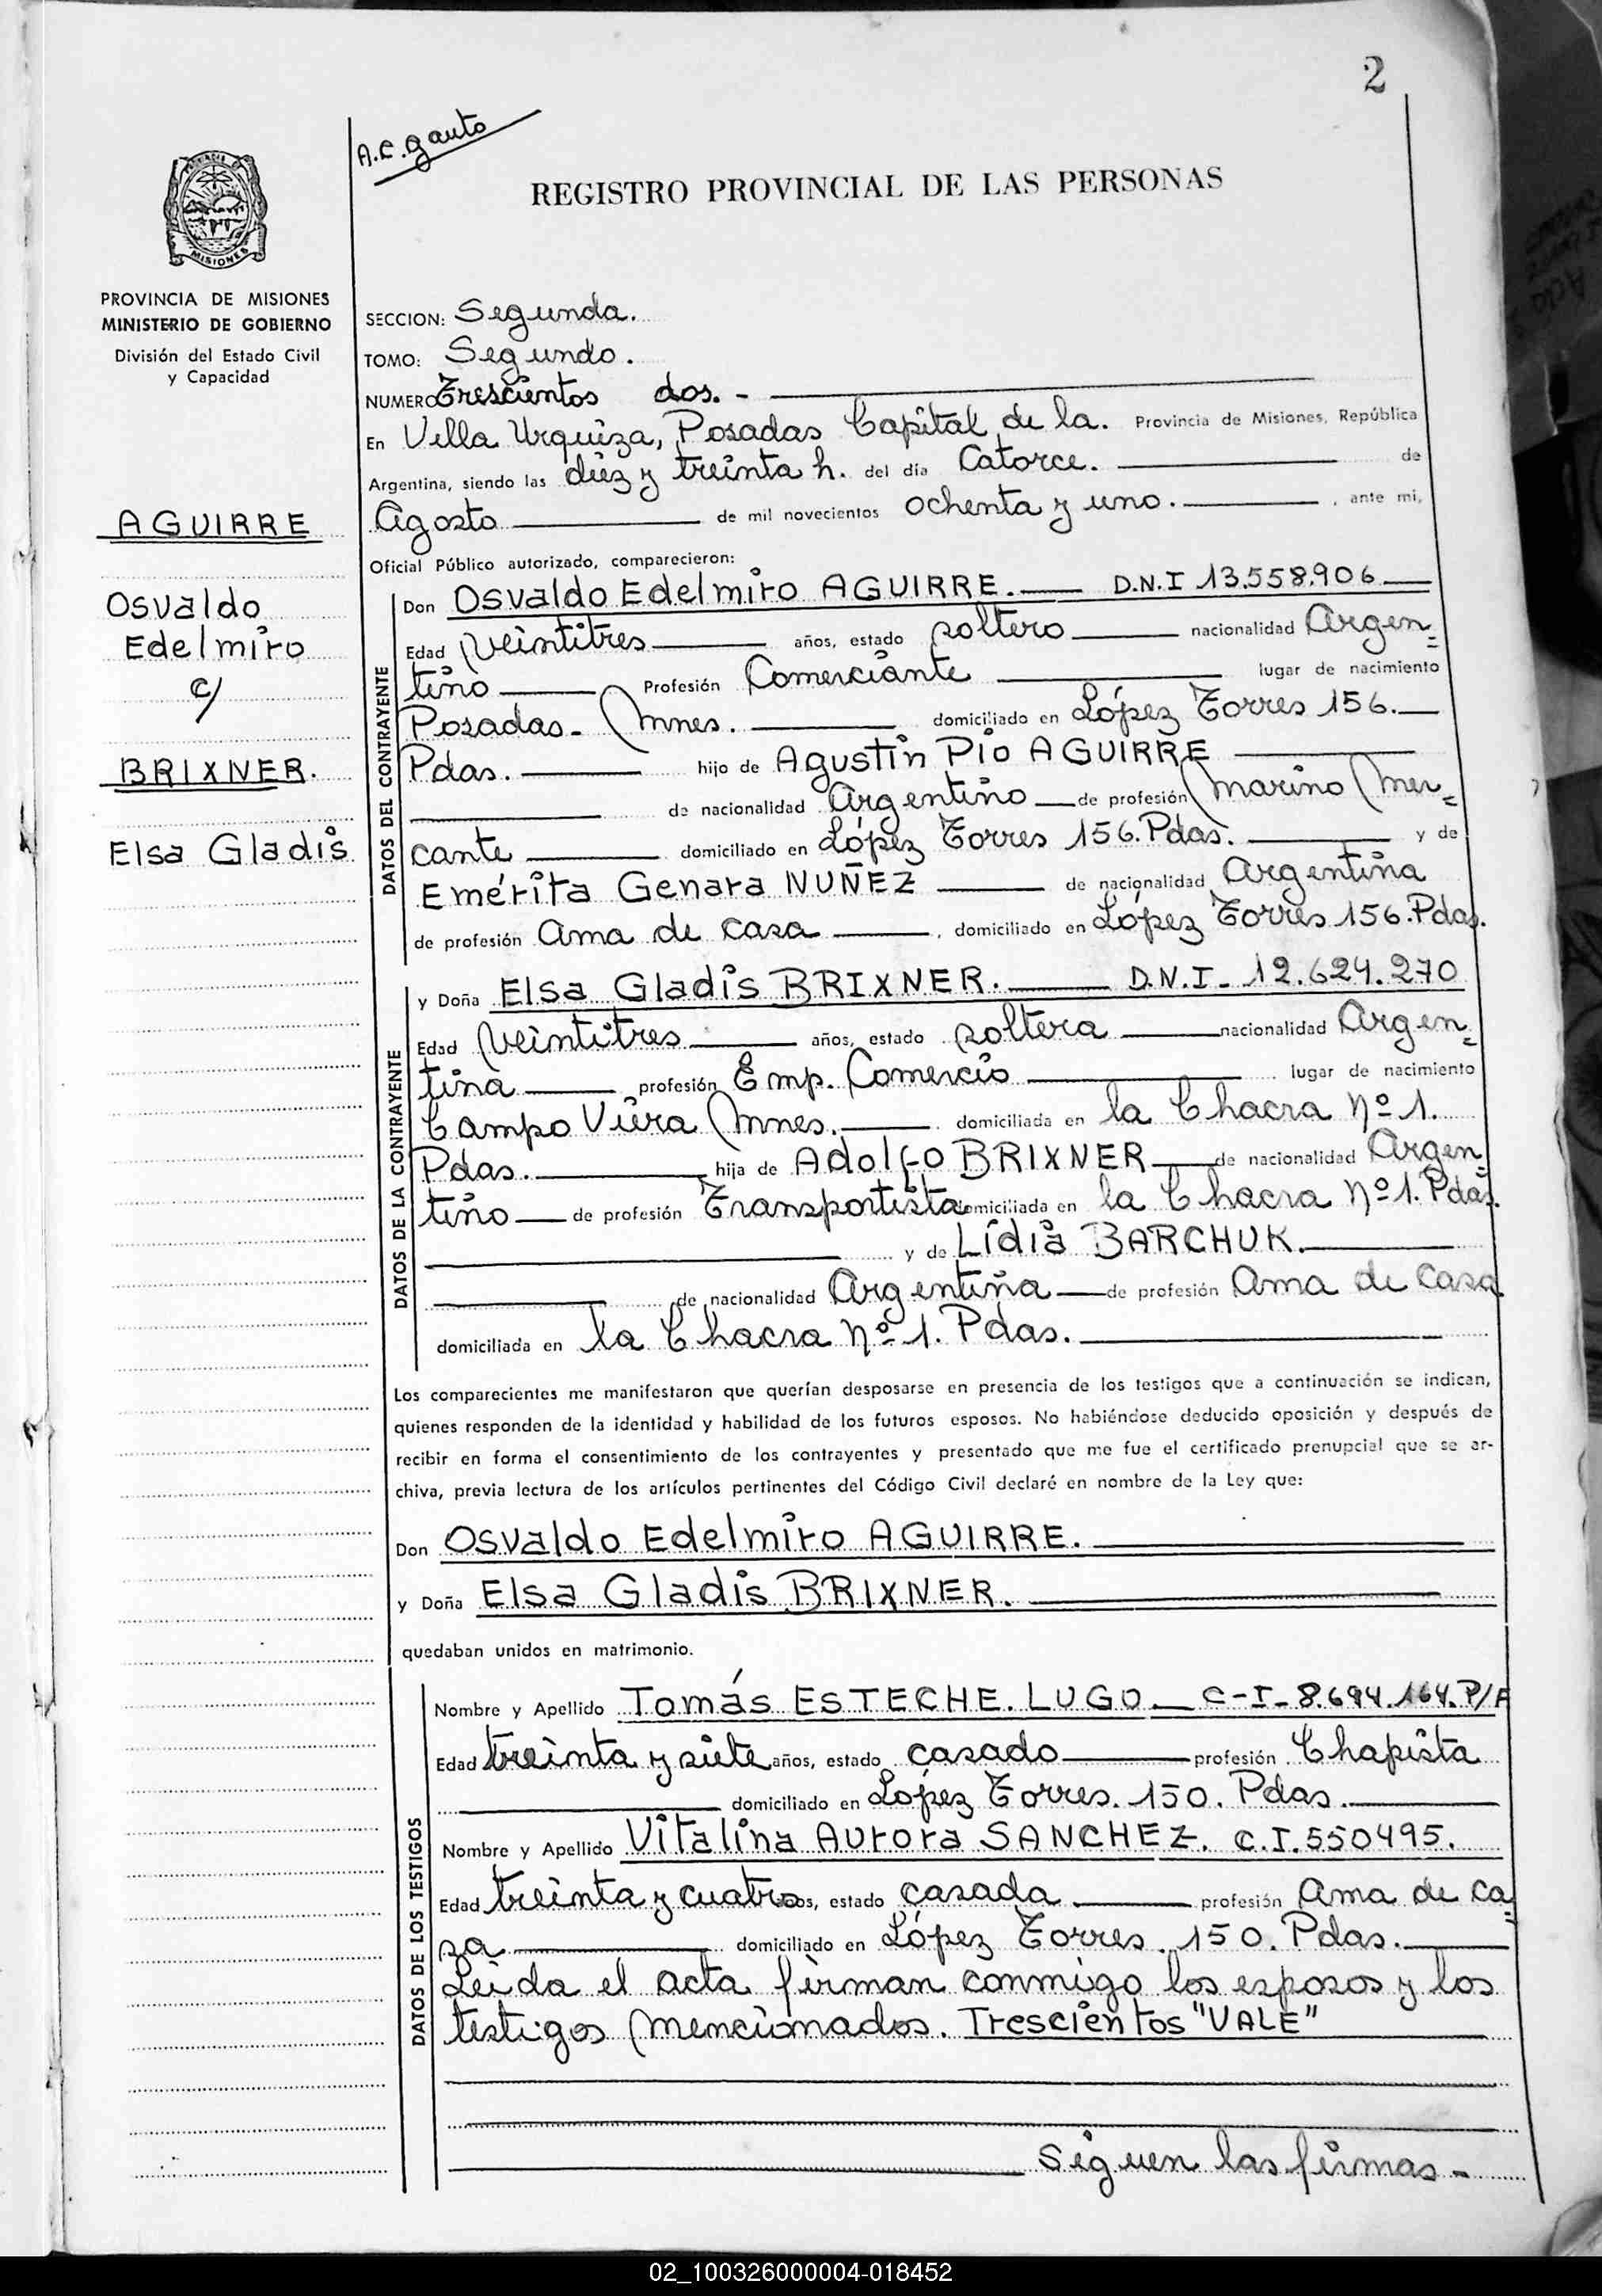 2
A.C. Gauto
REGISTRO PROVINCIAL DE LAS PERSONAS
MISIONES
PROVINCIA DE MISIONES
MINISTERIO DE GOBIERNO
División del Estado Civil
y Capacidad
AGUIRRE
Osvaldo
Edelmiro
c/
BRIXNER.
Elsa Gladis
SECCION: Segunda.
TOMO: Segundo.
NUMERO Trescientos dos. -
En Villa Urquiza, Posadas Capital de la. Provincia de Misiones, República
Argentina, siendo las diez y treinta h. del día Catorce. de
Agosto de mil novecientos ochenta y uno. , ante mi,
Oficial Público autorizado, comparecieron:
DATOS DEL CONTRAYENTE
Don Osvaldo Edelmiro AGUIRRE. D.N.I 13.558.906
Edad Veintitres años, estado soltero nacionalidad Argen=
tino Profesión Comerciante lugar de nacimiento
Posadas - Mnes. domiciliado en López Torres 156.
Pdas. hijo de Agustín Pío AGUIRRE
de nacionalidad Argentino de profesión Marino Mer=
cante domiciliado en López Torres 156. Pdas. y de
Emérita Genara NUÑEZ de nacionalidad Argentina
de profesión Ama de casa , domiciliado en López Torres 156. Pdas.
DATOS DE LA CONTRAYENTE
y Doña Elsa Gladis BRIXNER. D.N.I - 12.624.270
Edad Veintitres años, estado soltera nacionalidad Argen=
tina profesión Emp. Comercio lugar de nacimiento
Campo Viera Mnes. domiciliada en la Chacra Nº 1.
Pdas. hija de Adolfo BRIXNER de nacionalidad Argen=
tino de profesión Transportista domiciliada en la Chacra Nº 1. Pdas.
y de Lidia BARCHUK.
de nacionalidad Argentina de profesión Ama de casa
domiciliada en la Chacra Nº 1. Pdas.
Los comparecientes me manifestaron que querían desposarse en presencia de los testigos que a continuación se indican,
quienes responden de la identidad y habilidad de los futuros esposos. No habiéndose deducido oposición y después de
recibir en forma el consentimiento de los contrayentes y presentado que me fue el certificado prenupcial que se ar-
chiva, previa lectura de los artículos pertinentes del Código Civil declaré en nombre de la Ley que:
Don Osvaldo Edelmiro AGUIRRE.
y Doña Elsa Gladis BRIXNER.
quedaban unidos en matrimonio.
DATOS DE LOS TESTIGOS
Nombre y Apellido Tomás ESTECHE. LUGO. C-I- 8.694.164. P/F
Edad treinta y siete años, estado casado profesión Chapista
domiciliado en López Torres. 150. Pdas.
Nombre y Apellido Vitalina Aurora SANCHEZ. C.I. 550495.
Edad treinta y cuatro años, estado casada profesión Ama de ca=
sa domiciliado en López Torres. 150. Pdas.
Leida el acta firman conmigo los esposos y los
testigos mencionados. Trescientos "VALE"
Siguen las firmas -
02_100326000004-018452